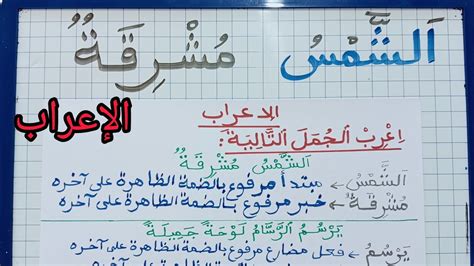 اَلشَّمْسُ مُشْرِقَةٌ
الإعراب
الإعراب
اِعْرِبْ اَلْجُمَلَ اَلتَّالِيَةَ :
اَلشَّمْسُ مُشْرِقَةٌ
اَلشَّمْسُ ← مبتدأ مرفوع بالضمة الظاهرة على آخره
مُشْرِقَةٌ ← خبر مرفوع بالضمة الظاهرة على آخره
يَرْسُمُ الرَّسَّامُ لَوْحَةً جَمِيلَةً
يَرْسُمُ ← فعل مضارع مرفوع بالضمة الظاهرة على آخره